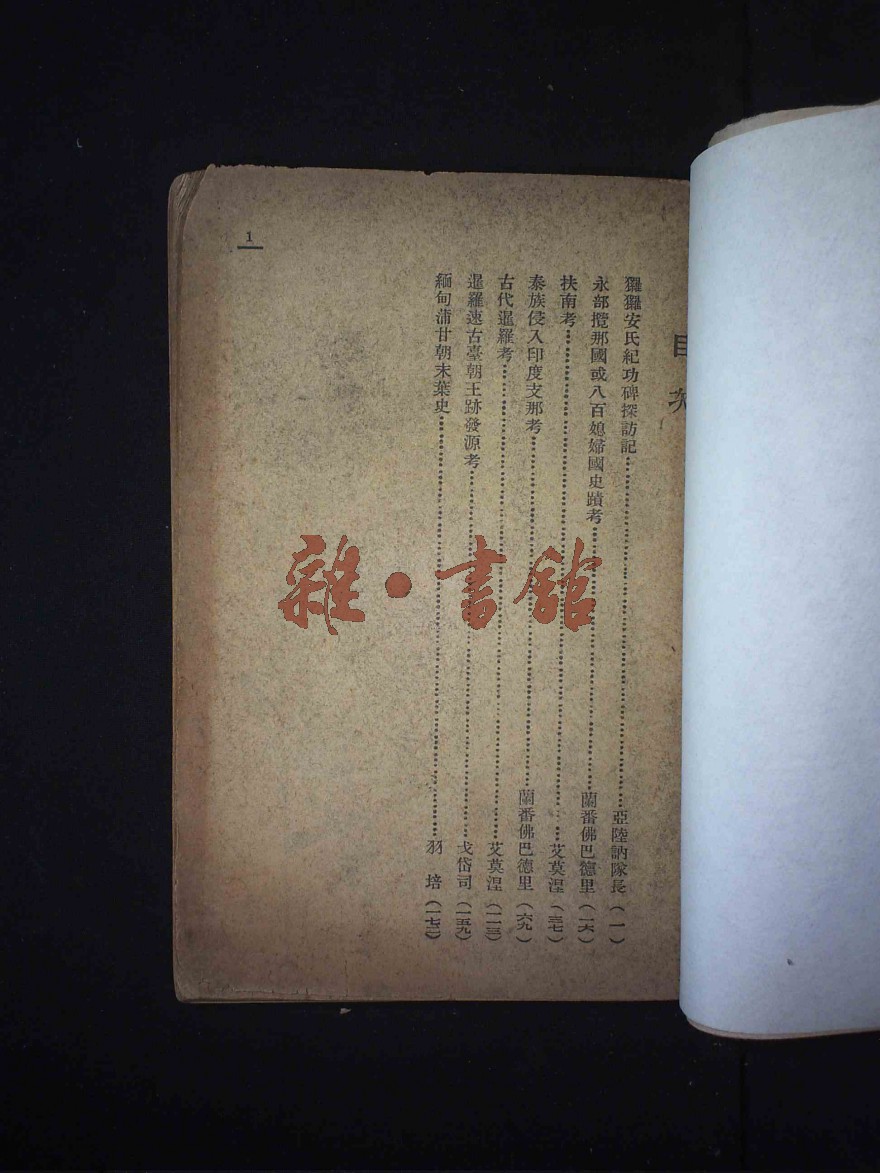 目次
玀玀安氏紀功碑探訪記……亞陸訥隊長（一）
永部攬那國或八百媳婦國史蹟考……蘭番佛巴德里（一六）
扶南考……艾莫涅（三七）
泰族侵入印度支那考……蘭番佛巴德里（六九）
古代暹羅考……艾莫涅（一一三）
暹羅速古臺朝王跡發源考……戈岱司（一五九）
緬甸蒲甘朝末葉史……羽培（一七二）
1
雜·書館